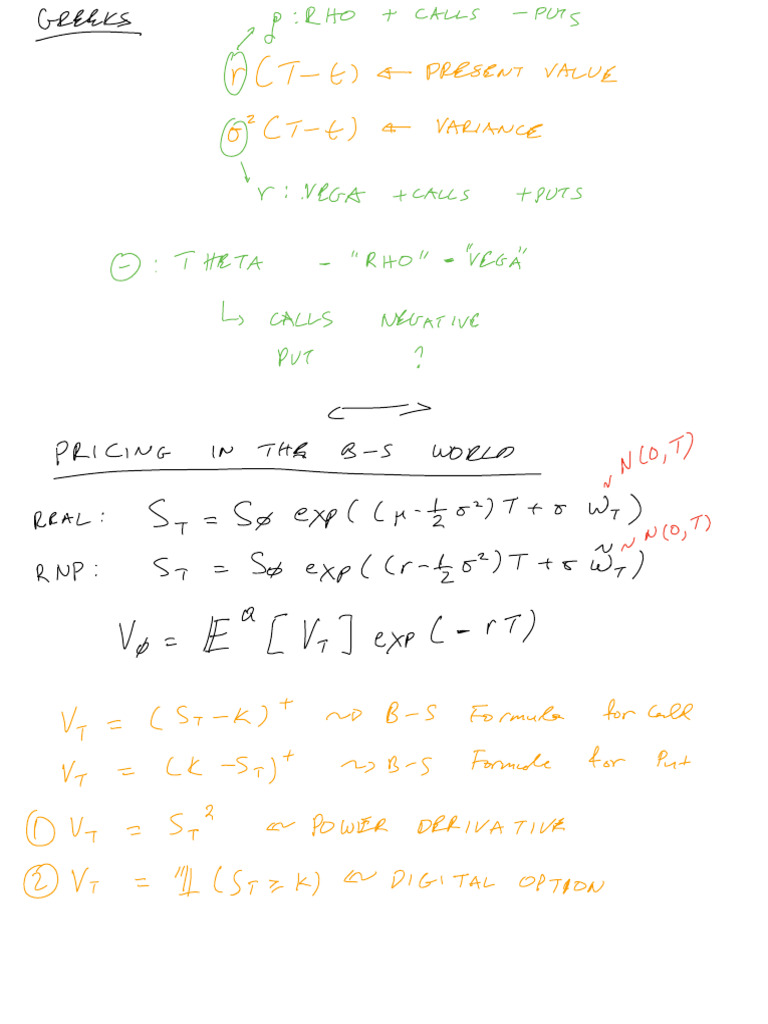 GREEKS
ρ : RHO + CALLS - PUTS
r (T-t) ← PRESENT VALUE
σ² (T-t) ← VARIANCE
r : VEGA + CALLS + PUTS
Θ : THETA - "RHO" - "VEGA"
↳ CALLS NEGATIVE
PUT ?
PRICING IN THE B-S WORLD
~ N(0,T)
REAL: S_T = S∅ exp((μ-½σ²)T + σ W_T)
~ N(0,T)
RNP: S_T = S∅ exp((r-½σ²)T + σ W̃_T)
V∅ = E^Q [V_T] exp(-rT)
V_T = (S_T - K)⁺ ⇝ B-S Formula for Call
V_T = (K - S_T)⁺ ⇝ B-S Formula for Put
① V_T = S_T² ⇜ POWER DERIVATIVE
② V_T = 𝟙 (S_T ≥ K) ⇜ DIGITAL OPTION